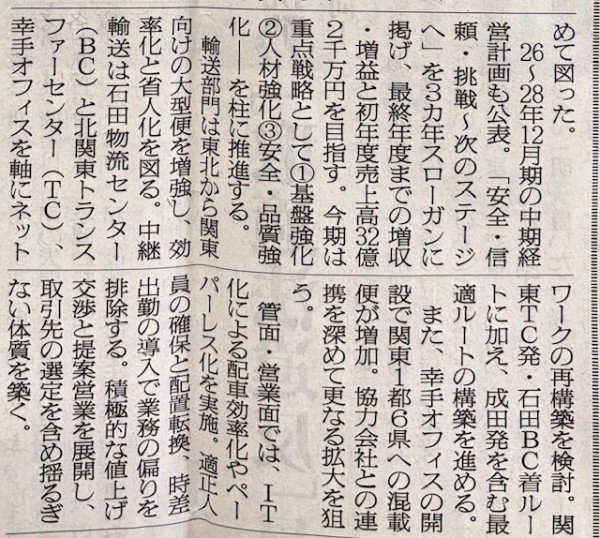 めて図った。
26〜28年12月期の中期経
営計画も公表。「安全・信
頼・挑戦〜次のステージ
へ」を3カ年スローガンに
掲げ、最終年度までの増収
・増益と初年度売上高32億
2千万円を目指す。今期は
重点戦略として①基盤強化
②人材強化③安全・品質強
化――を柱に推進する。
輸送部門は東北から関東
向けの大型便を増強し、効
率化と省人化を図る。中継
輸送は石田物流センター
(BC)と北関東トランス
ファーセンター(TC)、
幸手オフィスを軸にネット
ワークの再構築を検討。関
東TC発・石田BC着ルー
トに加え、成田発を含む最
適ルートの構築を進める。
また、幸手オフィスの開
設で関東1都6県への混載
便が増加。協力会社との連
携を深めて更なる拡大を狙
う。
管面・営業面では、IT
化による配車効率化やペー
パーレス化を実施。適正人
員の確保と配置転換、時差
出勤の導入で業務の偏りを
排除する。積極的な値上げ
交渉と提案営業を展開し、
取引先の選定を含め揺るぎ
ない体質を築く。